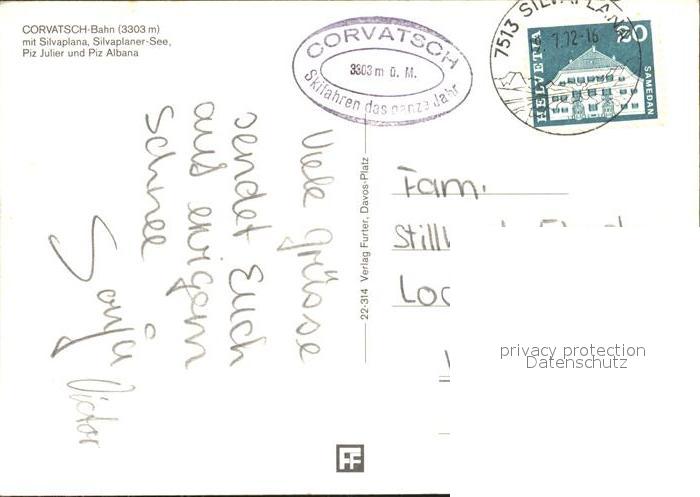 CORVATSCH-Bahn (3303 m)
mit Silvaplana, Silvaplaner-See,
Piz Julier und Piz Albana
CORVATSCH
3303 m ü. M.
Skifahren das ganze Jahr
7513 SILVAPLANA
7.72-16
HELVETIA
20
SAMEDAN
Viele Grüsse
sendet Euch
aus ewigem
Schnee
Sonja
Victor
22-314 Verlag Furter, Davos-Platz
Fam.
privacy protection
Datenschutz
FF